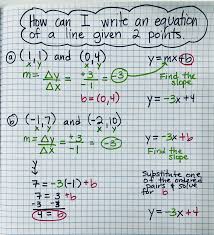 How can I write an equation
of a line given 2 points.
ⓐ (1,1) and (0,4)
x y x y
y=mx+b
m = Δy/Δx = +3/-1 = -3
Find the
slope
b = (0,4)
y = -3x + 4
ⓑ (-1,7) and (-2,10)
x y x y
m = Δy/Δx = +3/-1 = -3
y = -3x + b
Find the
slope
y
↓
7 = -3(-1) + b
7 = 3 + b
-3 -3
4 = b
Substitute one
of the ordered
pairs & solve
for b
y = -3x + 4